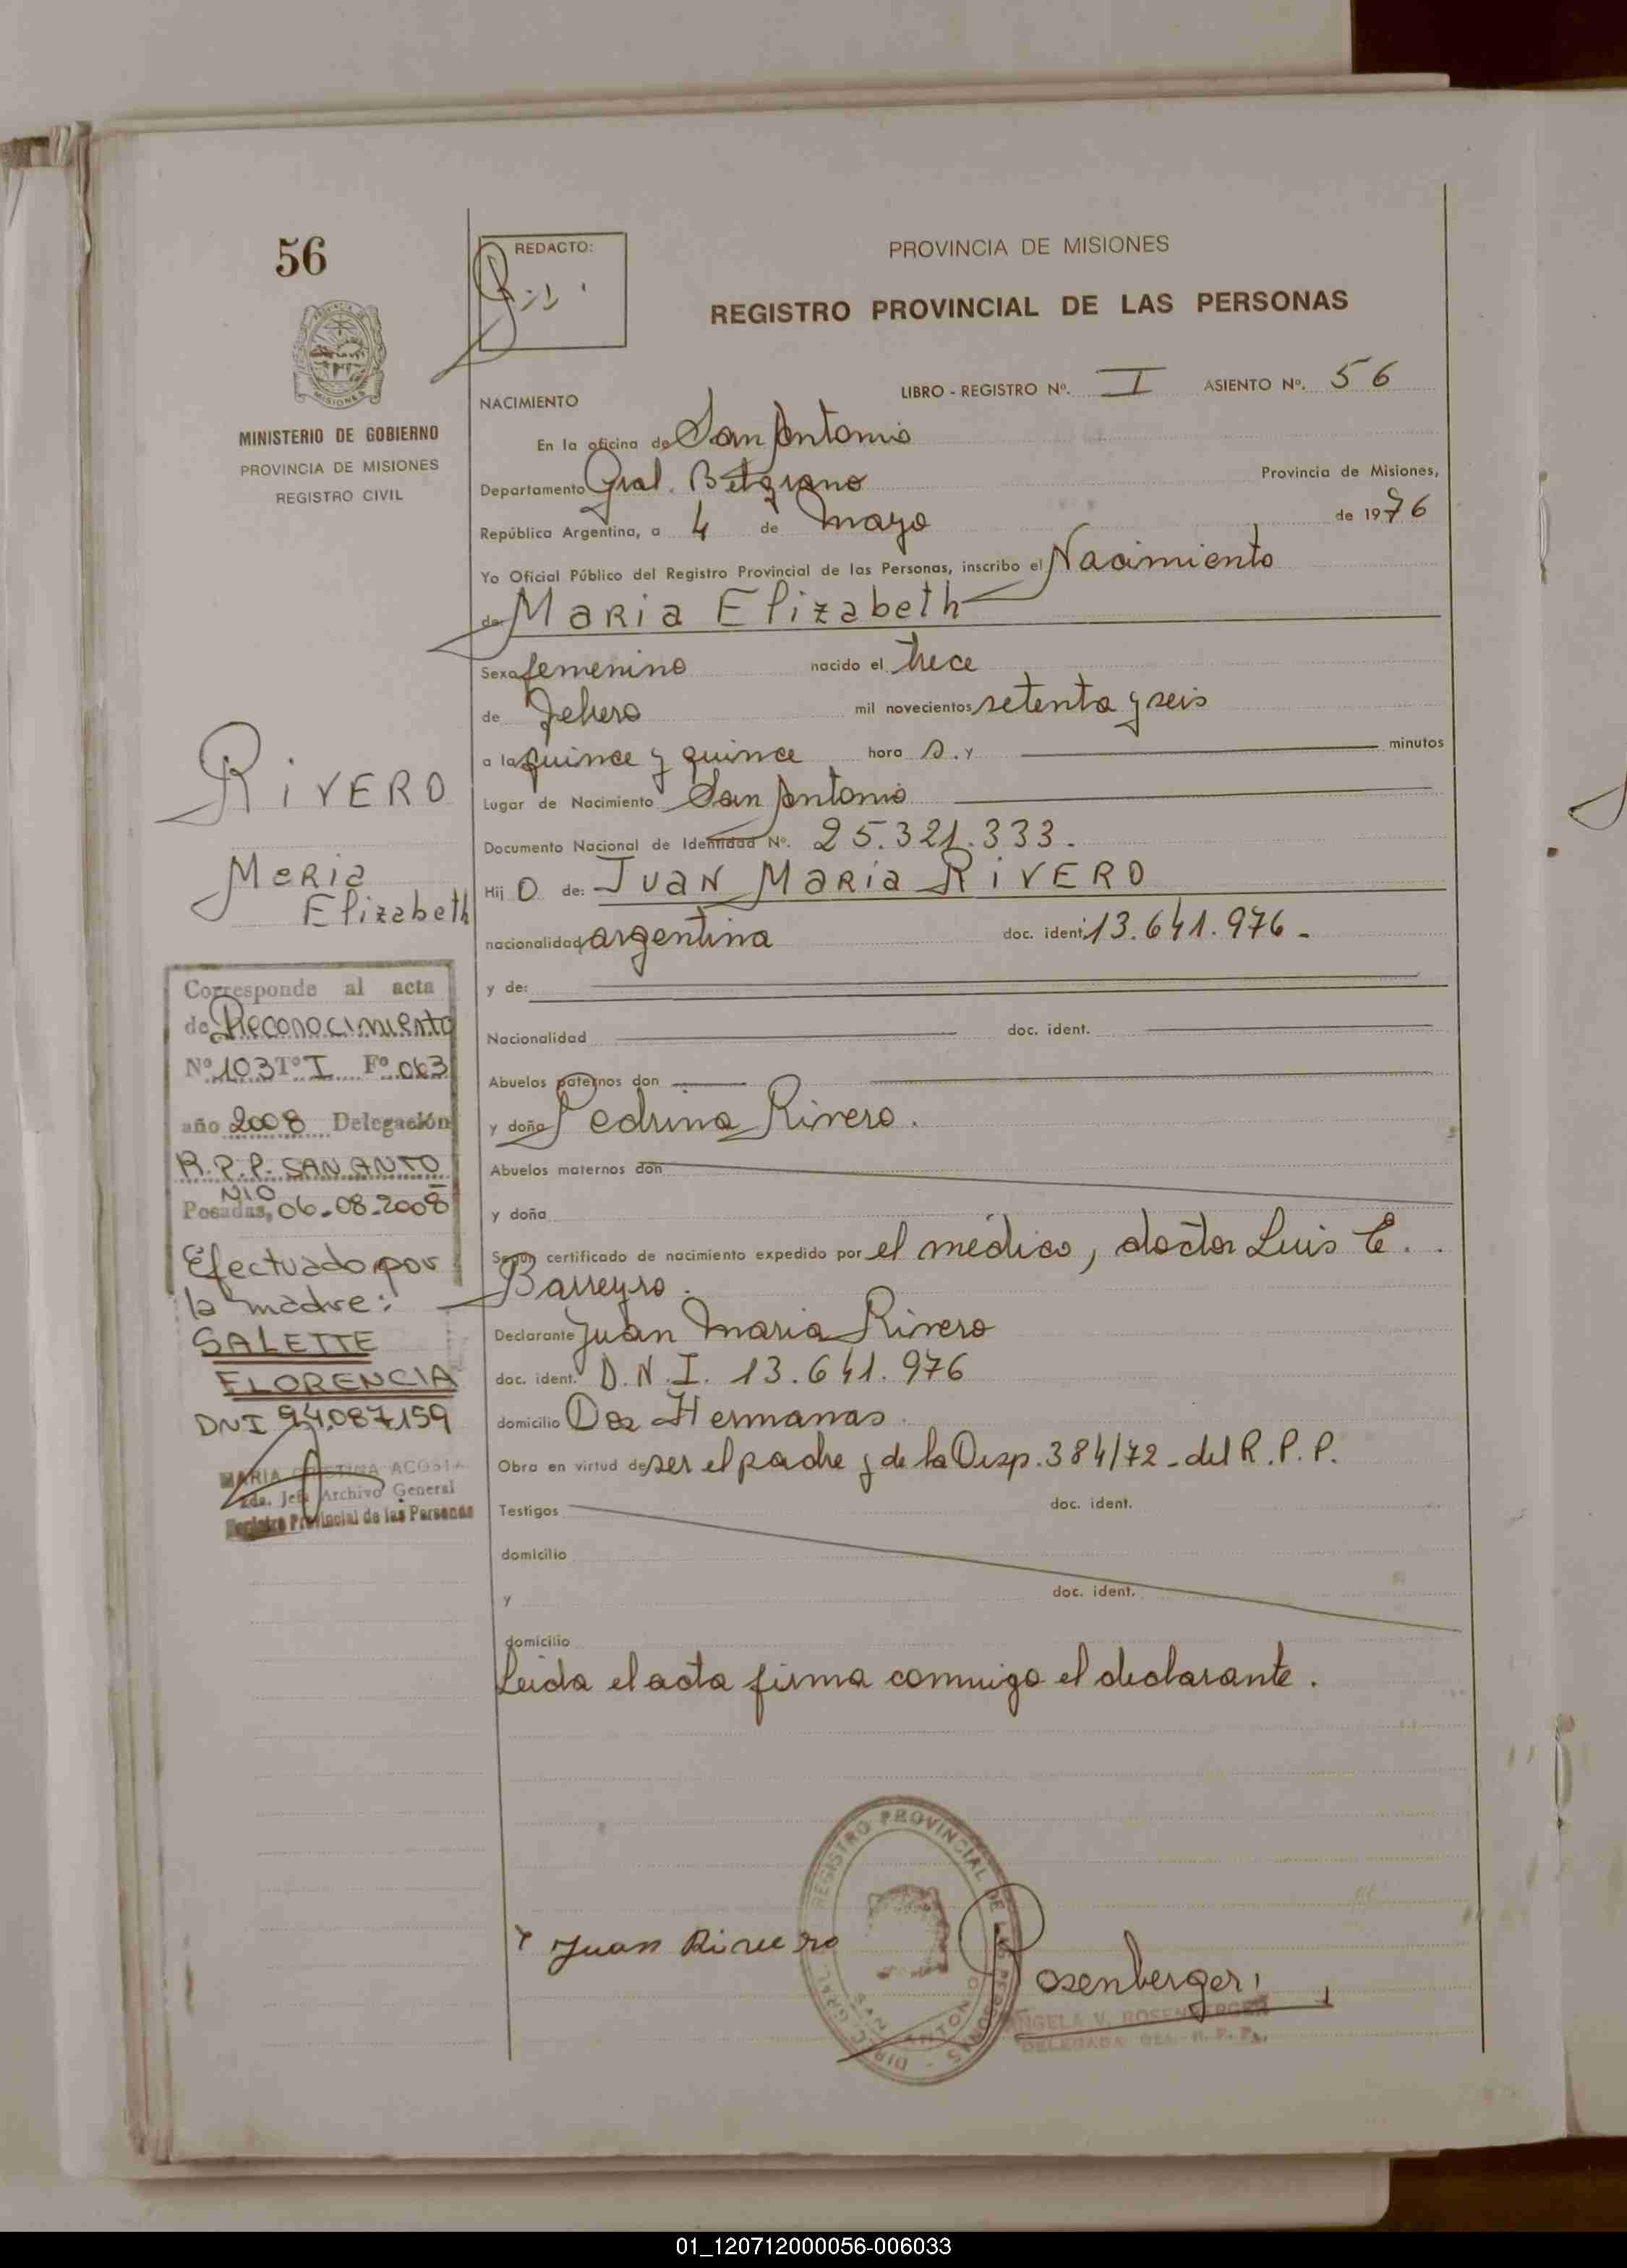 56
REDACTO:
PROVINCIA DE MISIONES
REGISTRO PROVINCIAL DE LAS PERSONAS
LIBRO - REGISTRO Nº. I ASIENTO Nº. 56
NACIMIENTO
MINISTERIO DE GOBIERNO
PROVINCIA DE MISIONES
REGISTRO CIVIL
En la oficina de San Antonio
Departamento Gral. Belgrano Provincia de Misiones,
República Argentina, a 4 de mayo de 1976
Yo Oficial Público del Registro Provincial de las Personas, inscribo el Nacimiento
de: Maria Elizabeth
Sexo femenino nacido el trece
de febrero mil novecientos setenta y seis
a la quince y quince hora s. y minutos
Lugar de Nacimiento San Antonio
Documento Nacional de Identidad Nº. 25.321.333.
Hij O de: Juan Maria RIVERO
nacionalidad argentina doc. ident. 13.641.976-
y de:
Nacionalidad doc. ident.
Abuelos paternos don
y doña Pedrina Rivero.
Abuelos maternos don
y doña
Según certificado de nacimiento expedido por el médico, doctor Luis E.
Barreyro.
Declarante Juan Maria Rivero
doc. ident. D.N.I. 13.641.976
domicilio Dos Hermanas.
Obra en virtud de ser el padre y de la Disp. 384/72 - del R.P.P.
Testigos doc. ident.
domicilio
y doc. ident.
domicilio
Leida el acta firma conmigo el declarante.
RIVERO
Maria
Elizabeth
Corresponde al acta
de Reconocimiento
Nº 103 Tº I Fº 063
año 2008 Delegación
R.P.P. SAN ANTO
NIO
Posadas, 06-08-2008
Efectuado por
la madre:
SALETTE
FLORENCIA
DNI 94.087.159
MARIA CRISTINA ACOSTA
2da. Jefa Archivo General
Registro Provincial de las Personas
Juan Rivero
Rosenberger
ANGELA V. ROSENBERGER
DELEGADA DEL R. P. P.
DIR. GRAL. REGISTRO PROVINCIAL DE LAS PERSONAS
SAN ANTONIO
MISIONES
01_120712000056-006033